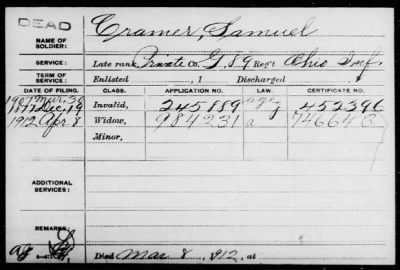 DEAD
Cramer, Samuel
NAME OF SOLDIER:
SERVICE: Late rank, Private Co. G, 59 Reg't Ohio Inf.
TERM OF SERVICE: Enlisted , 1 Discharged , 1
DATE OF FILING. CLASS. APPLICATION NO. LAW. CERTIFICATE NO.
1907 Mar. 30
1877 Dec. 19 Invalid, 245889 age 452396
1912 Apr 8 Widow, 984231 a 746646
Minor,
ADDITIONAL SERVICES:
REMARKS:
Died Mar 8, 1912, at